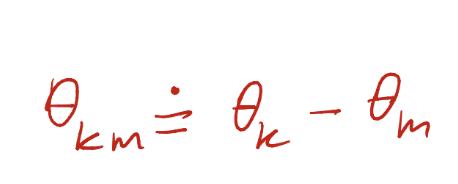 θ_{km} ≐ θ_k - θ_m